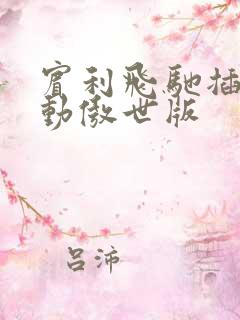 賓利飛馳插
動傲世版
呂沛